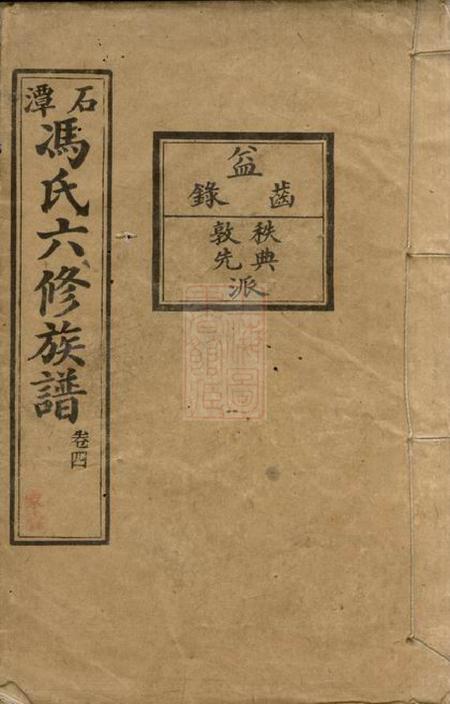 石潭
馮氏六修族譜
卷四
齒錄
益
秩典
敦先
派